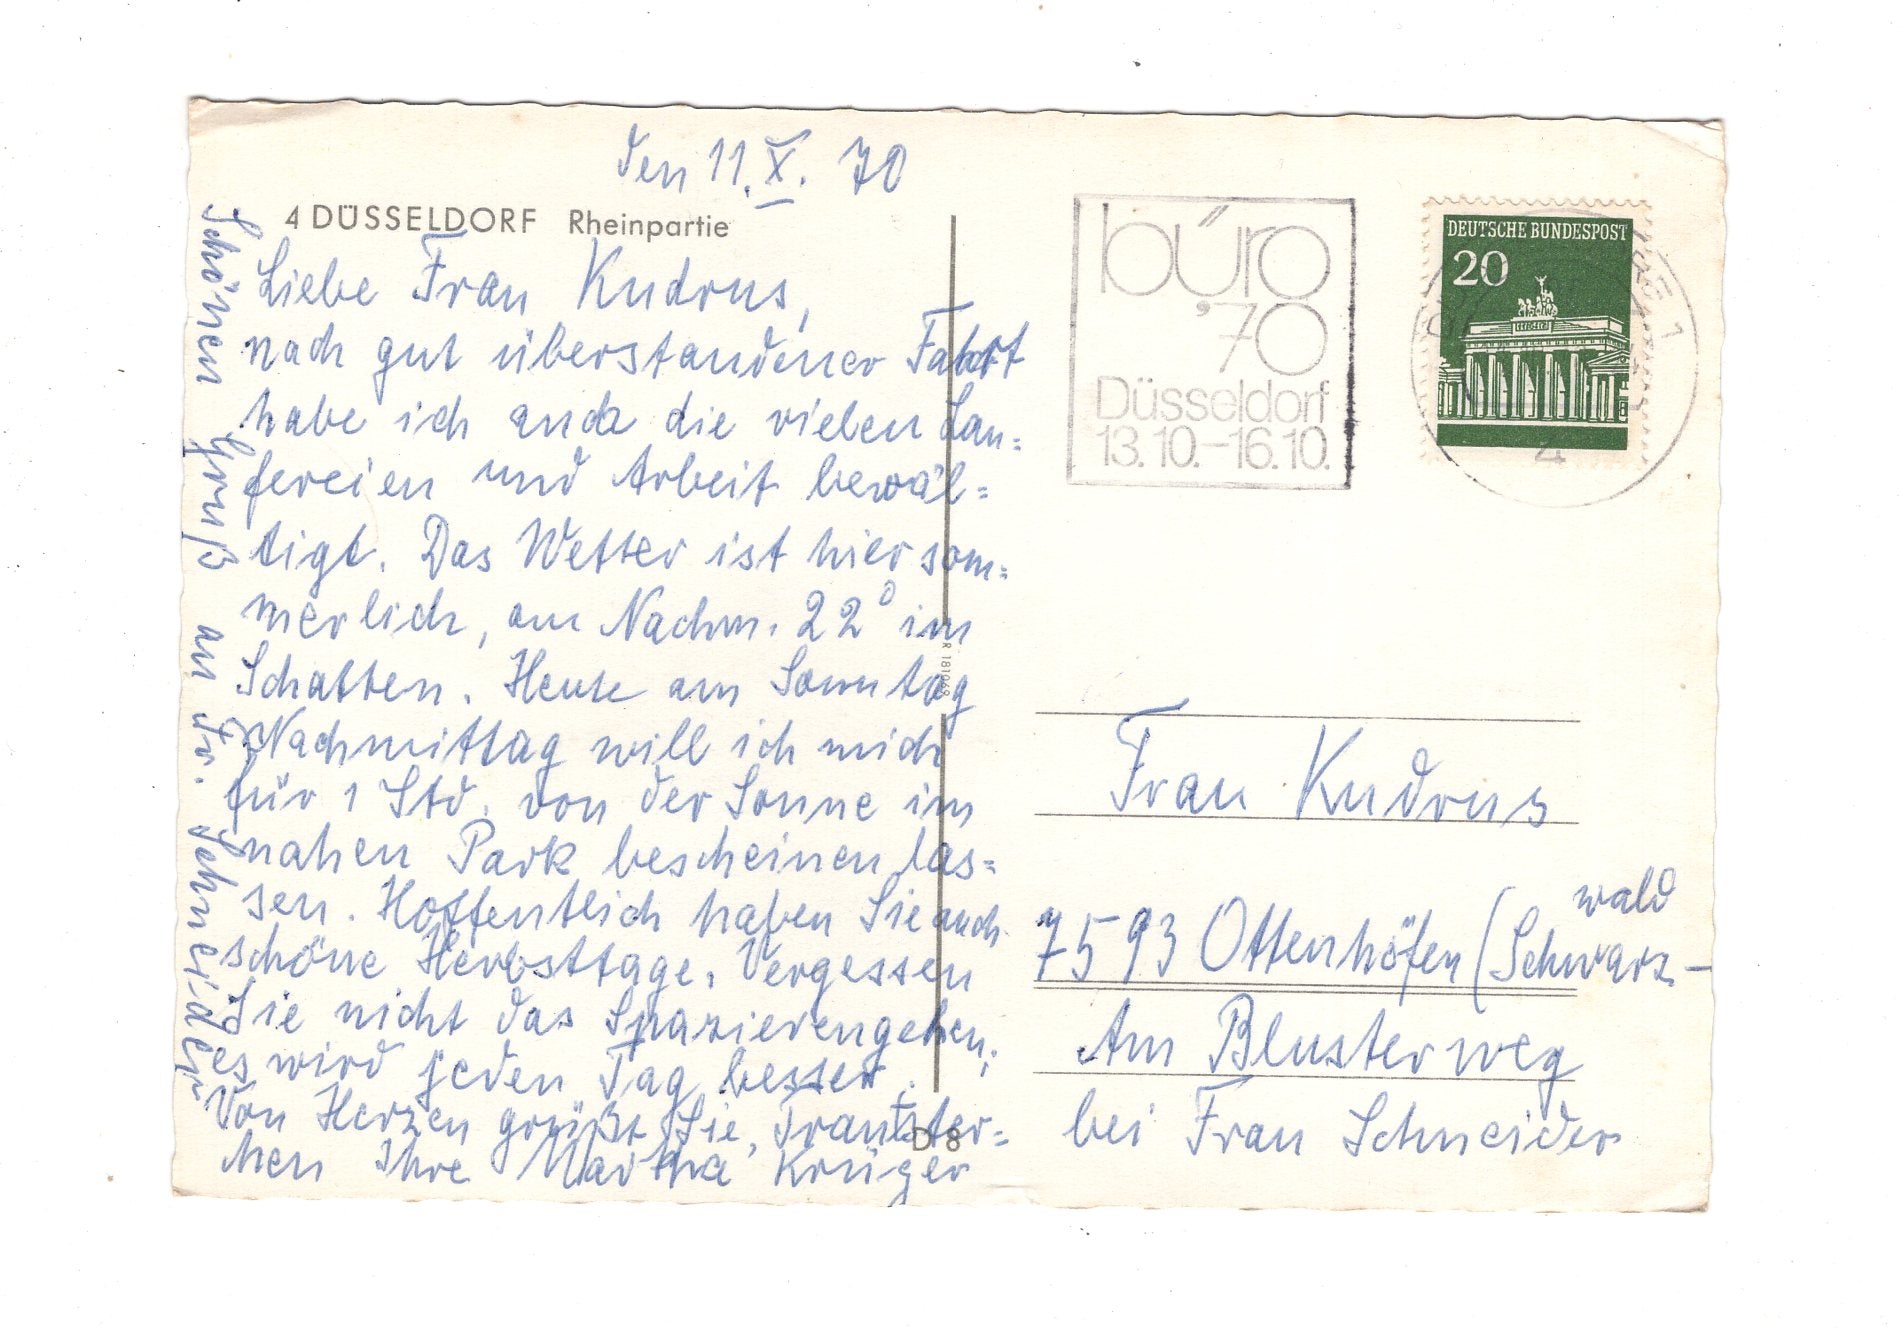 den 11. X. 70
4 DÜSSELDORF Rheinpartie
Liebe Frau Kudrus,
nach gut überstandener Fahrt
habe ich auch die vielen Lau=
fereien und Arbeit bewäl=
tigt. Das Wetter ist hier som=
merlich, am Nachm. 22° im
Schatten. Heute am Sonntag
Nachmittag will ich mich
für 1 Std. von der Sonne im
nahen Park bescheinen las=
sen. Hoffentlich haben Sie auch
schöne Herbsttage. Vergessen
Sie nicht das Spazierengehen;
es wird jeden Tag besser.
Von Herzen grüßt Sie,
chen Ihre Martha Krüger
Schönen Gruß an Fr. Schneider
R 181069
D 8
büro
'70
Düsseldorf
13.10.-16.10.
DEUTSCHE BUNDESPOST
20
4
Frau Kudrus
7593 Ottenhöfen (Schwarz-
wald
Am Blusterweg
bei Frau Schneider